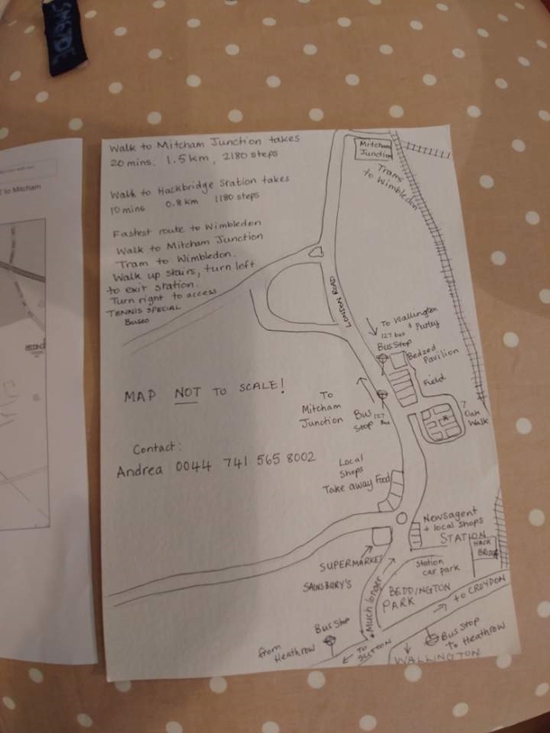 to Mitcham
Walk to Mitcham Junction takes
20 mins. 1.5km, 2180 steps
Walk to Hackbridge Station takes
10 mins 0.8 km 1180 steps
Fastest route to Wimbledon
Walk to Mitcham Junction
Tram to Wimbledon.
Walk up stairs, turn left
to exit station.
Turn right to access
TENNIS SPECIAL
Buses
Mitcham
Junction
Trams
to Wimbledon
LONDON ROAD
To Wallington
+ Purley
127 bus
Bus Stop
Bedzed
Pavilion
Field
7
Oak
Walk
MAP NOT TO SCALE!
To
Mitcham
Junction
Bus
Stop
127
Contact:
Andrea 0044 741 565 8002
Local
Shops
Take away Food
Newsagent
+ local shops
STATION
HACK
BRIDGE
Station
car park
SUPERMARKET
SAINSBURY'S
Much longer
BEDDINGTON
PARK
→ to CROYDON
Bus Stop
from
Heathrow
← TO
SUTTON
Bus Stop
to Heathrow
WALLINGTON